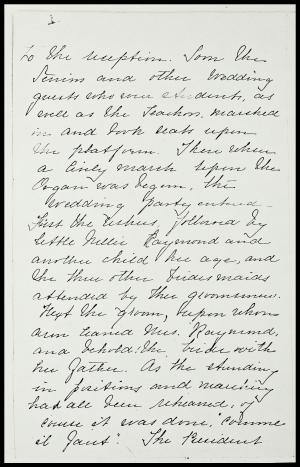 to the reception. Soon the
Seniors and other wedding
guests who were students, as
well as the Teachers, marched
in and took seats upon
the platform. Then when
a lively march upon the
Organ was begun, the
wedding party entered—
First the ushers, followed by
little Nellie Raymond and
another child her age, and
the three other bridesmaids
attended by their groomsmen.
Next the groom, upon whose
arm leaned Mrs. Raymond,
and behold! the bride with
her Father. As the standing
in positions and marching
had all been rehearsed, of
course it was done, "comme
il faut". The President